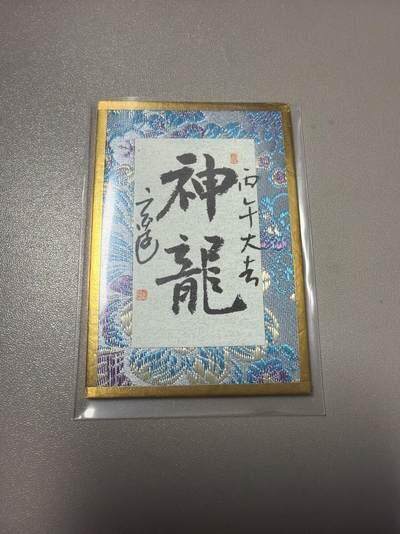 丙午大吉
神龍